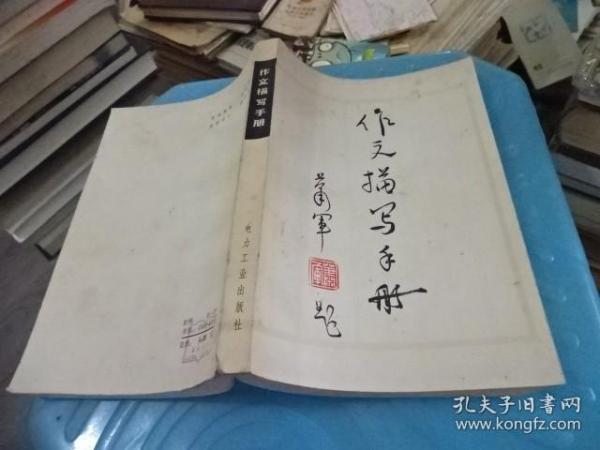 作文描写手册
萧军
题
作文描写手册
电力工业出版社
孔夫子旧书网
www.kongfz.com